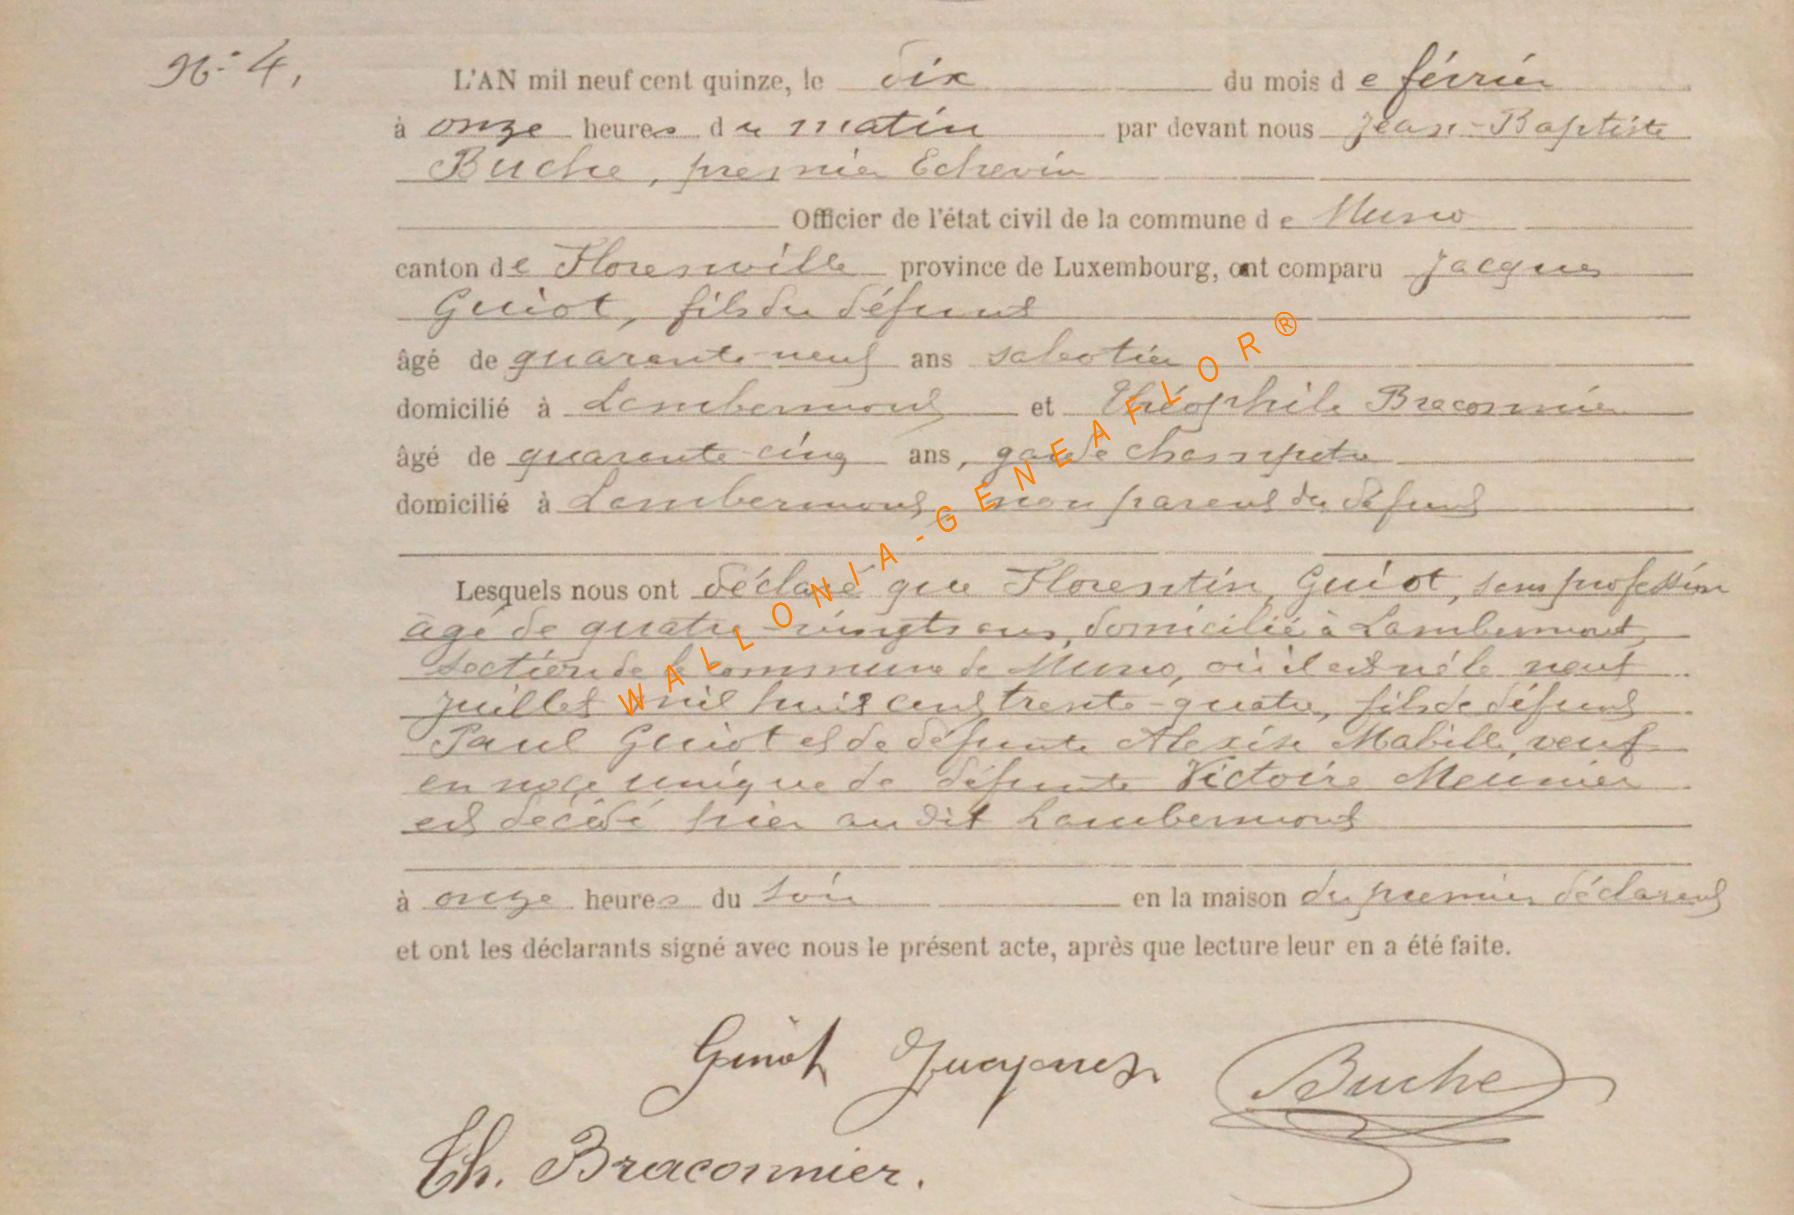 N° 4,
L'AN mil neuf cent quinze, le dix du mois de février
à onze heures du matin par devant nous Jean-Baptiste
Buche, premier Echevin
Officier de l'état civil de la commune de Muno
canton de Florenville province de Luxembourg, ont comparu Jacques
Guiot, fils du défunt
âgé de quarante-neuf ans sabotier
domicilié à Lambermont et Théophile Braconnier
âgé de quarante-cinq ans, garde champetre
domicilié à Lambermont, non parent du défunt
Lesquels nous ont déclaré que Florentin Guiot, sans profession
âgé de quatre-vingts ans, domicilié à Lambermont,
section de la commune de Muno, où il est né le neuf
juillet mil huit cent trente-quatre, fils de défunt
Paul Guiot et de défunte Alexise Mabille, veuf
en noce unique de défunte Victoire Meunier
est décédé hier au dit Lambermont
à onze heures du soir en la maison du premier déclarant
et ont les déclarants signé avec nous le présent acte, après que lecture leur en a été faite.
Guiot Jacques Buche
Th. Braconnier.
WALLONIA-GENEAFLOR®